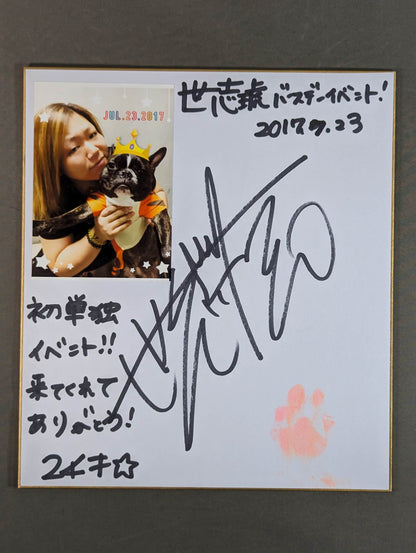 世志琥バースデーイベント!
2017.7.23
JUL.23.2017
初単独
イベント!!
来てくれて
ありがとう!
世志琥